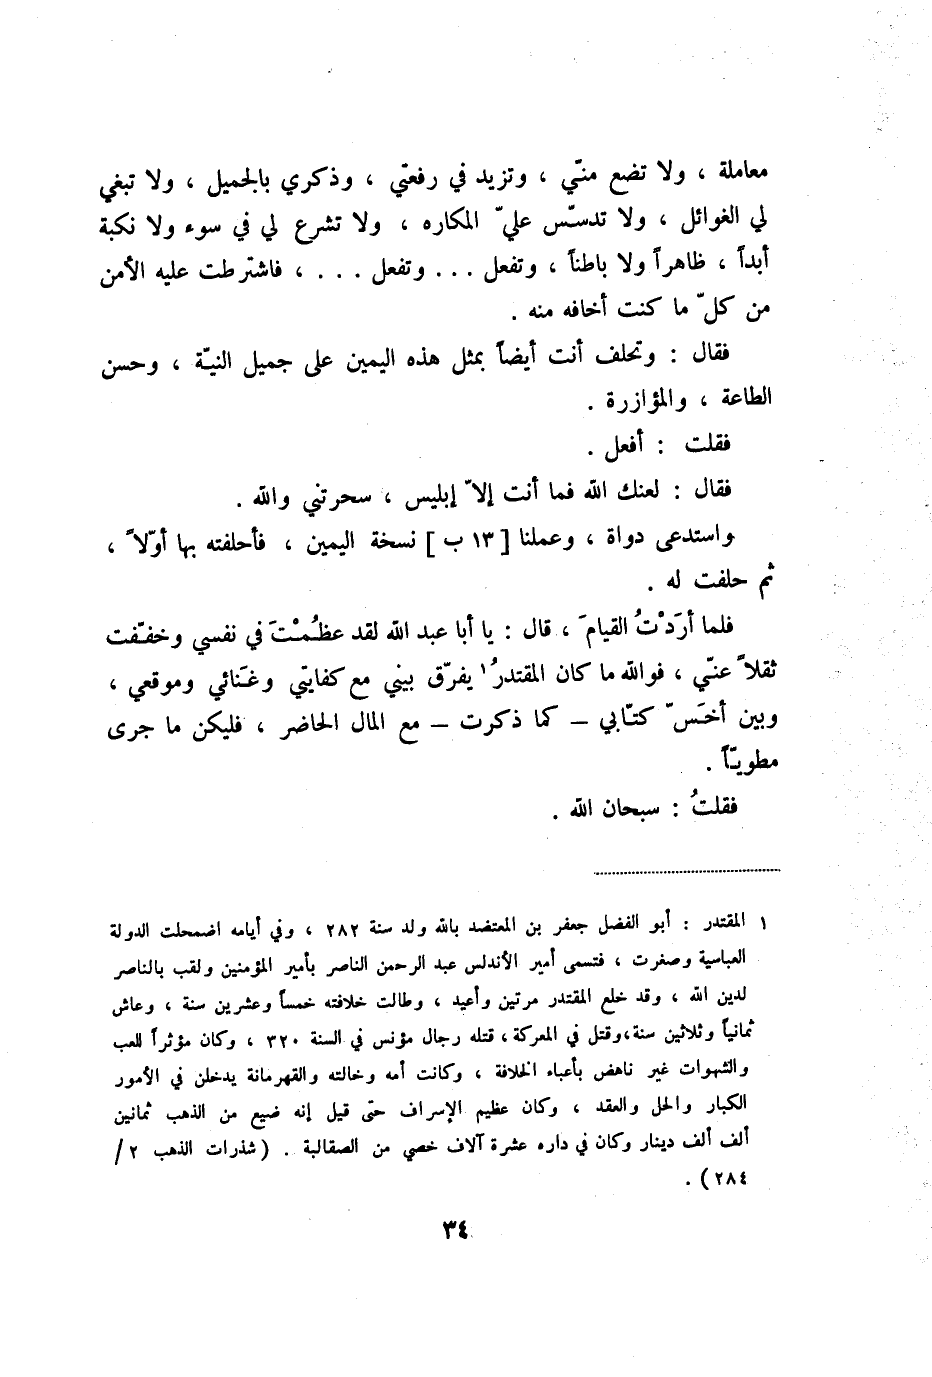 معاملة ، ولا تضع منّي ، وتزيد في رفعتي ، وذكري بالجميل ، ولا تبغي
لي الغوائل ، ولا تدسّس عليّ المكاره ، ولا تشرع لي في سوء ولا نكبة
أبداً ، ظاهراً ولا باطناً ، وتفعل ... وتفعل ... ، فاشترطت عليه الأمن
من كلّ ما كنت أخافه منه .
فقال : وتحلف أنت أيضاً بمثل هذه اليمين على جميل النيّة ، وحسن
الطاعة ، والمؤازرة .
فقلت : أفعل .
فقال : لعنك الله فما أنت إلاّ إبليس ، سحرتني والله .
واستدعى دواة ، وعملنا [ ١٣ ب ] نسخة اليمين ، فأحلفته بها أوّلاً ،
ثم حلفت له .
فلما أرَدْتُ القيامَ ، قال : يا أبا عبد الله لقد عظُمْتَ في نفسي وخفّفت
ثقلاً عنّي ، فوالله ما كان المقتدرُ١ يفرّق بيني مع كفايتي وغَنائي وموقعي ،
وبين أخسّ كتّابي – كما ذكرت – مع المال الحاضر ، فليكن ما جرى
مطويّاً .
فقلتُ : سبحان الله .
١ المقتدر : أبو الفضل جعفر بن المعتضد بالله ولد سنة ٢٨٢ ، وفي أيامه اضمحلت الدولة
العباسية وصغرت ، فتسمى أمير الأندلس عبد الرحمن الناصر بأمير المؤمنين ولقب بالناصر
لدين الله ، وقد خلع المقتدر مرتين وأعيد ، وطالت خلافته خمساً وعشرين سنة ، وعاش
ثمانياً وثلاثين سنة،وقتل في المعركة، قتله رجال مؤنس في السنة ٣٢٠ ، وكان مؤثراً للعب
والشهوات غير ناهض بأعباء الخلافة ، وكانت أمه وخالته والقهرمانة يدخلن في الأمور
الكبار والحل والعقد ، وكان عظيم الإسراف حتى قيل إنه ضيع من الذهب ثمانين
ألف ألف دينار وكان في داره عشرة آلاف خصي من الصقالبة . ( شذرات الذهب ٢ /
٢٨٤ ) .
٣٤